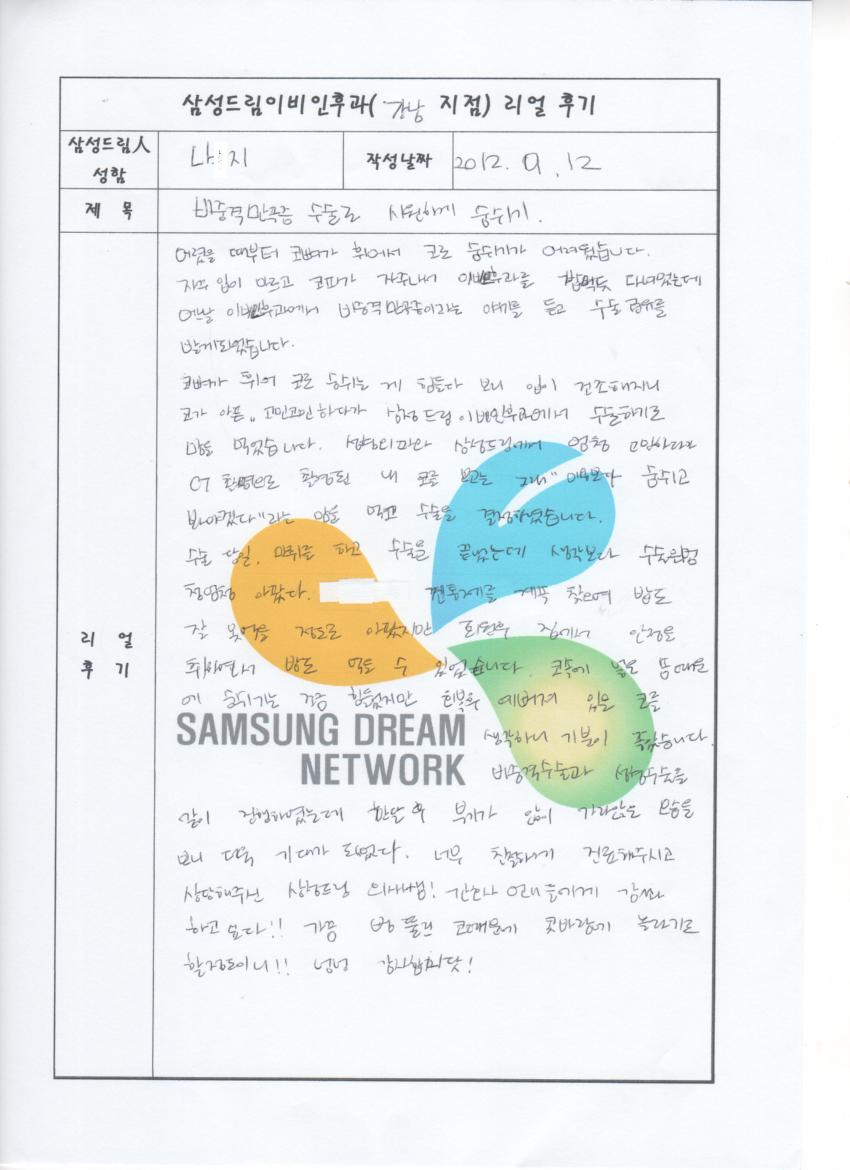 삼성드림이비인후과( 강남 지점) 리얼 후기
삼성드림人
성함
나 지
작성날짜
2012. 9. 12
제 목
비중격만곡증 수술로 시원하게 숨쉬기.
리 얼
후 기
어렸을 때부터 코뼈가 휘어서 코로 숨쉬기가 어려웠습니다.
자주 입이 마르고 코피가 자주나서 이비인후과를 밥먹듯 다녔었는데
옛날 이비인후과에서 비중격만곡증이라는 얘기를 듣고 수술 권유를
받게되었습니다.
코뼈가 휘어 코로 숨쉬는 게 힘들다 보니 입이 건조해지니
코가 아픔.. 고민고민하다가 삼성드림이비인후과에서 수술하기로
맘을 먹었습니다. 삼성드림에서 엄청 고민하다가
CT 촬영으로 촬영된 내 코를 보고는 숨쉬고
봐야겠다"라는 맘을 먹고 수술을 결정하였습니다.
수술 당일, 마취를 하고 수술을 끝냈는데 생각보다
아팠다. 진통제를 계속 찾으며 밥도
잘 못먹을 정도로 아팠지만 회원후 집에서 안정을
취하면서 밥도 먹을 수 있었습니다. 코속에 넣은 솜때문
에 숨쉬기는 조금 힘들었지만 회복후 예뻐져 있을 코를
SAMSUNG DREAM
NETWORK
생각하니 기분이 좋았습니다.
비중격수술과 성형수술을
같이 진행하였는데 한달 후 부기가 많이 가라앉은 모습을
보니 더욱 기대가 되었다. 너무 친절하게 진료해주시고
상담해주신 삼성드림 의사쌤! 간호사 언니들에게 감사
하고 싶다!! 가끔 뻥 뚫린 코때문에 콧바람에 놀라기도
할정도이니!! 넘넘 감사합니닷!